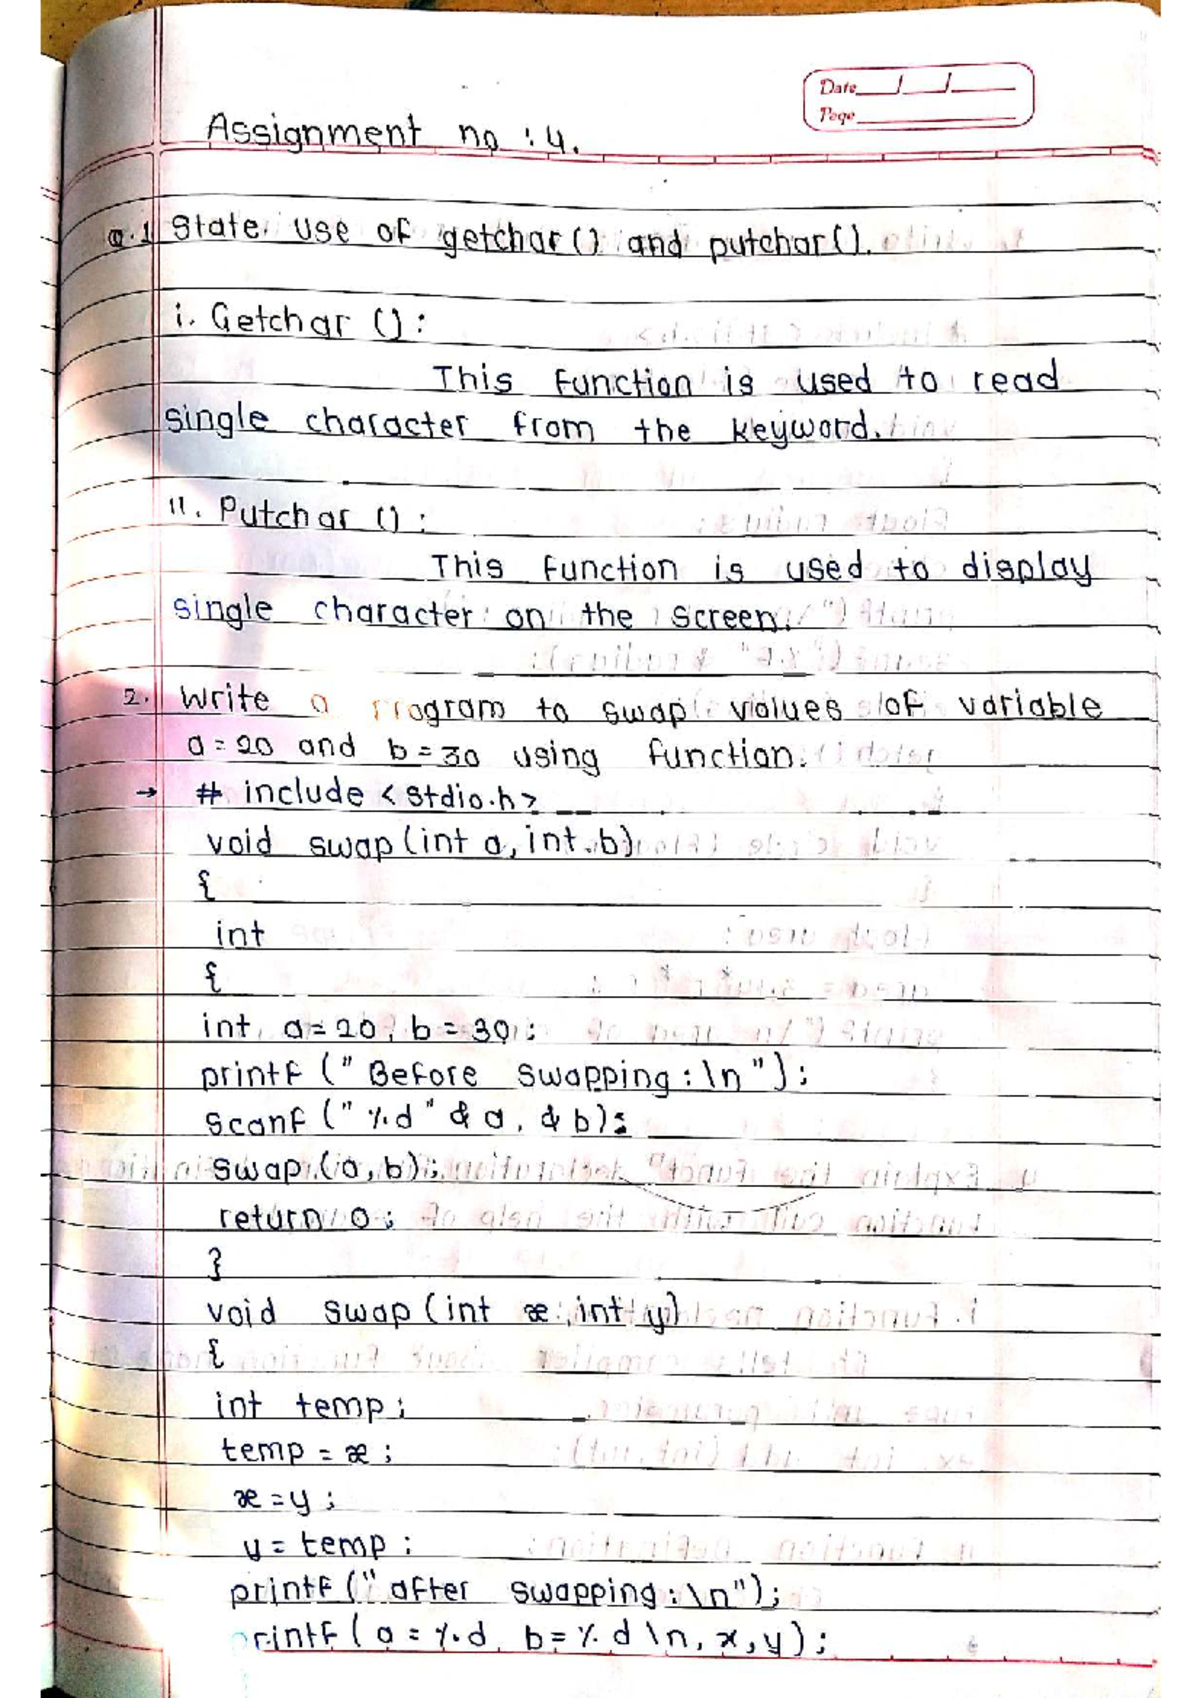 Date / /
Page
Assignment no : 4.
Q.1 State use of getchar() and putchar().
i. Getchar () :
This function is used to read
single character from the keyword.
11. Putchar () :
This function is used to display
single character on the screen.
2. Write a Program to swap values of variable
a = 20 and b = 30 using function.
→ # include <stdio.h>
void swap (int a, int b)
{
int
{
int a = 20, b = 30 ;
printf (" Before swapping : \n ") ;
scanf (" %d " & a , & b) ;
swap (a, b) ;
return 0 ;
}
void swap (int x , int y)
{
int temp ;
temp = x ;
x = y ;
y = temp ;
printf (" after swapping : \n") ;
printf ( a = %d b = % d \n, x, y) ;